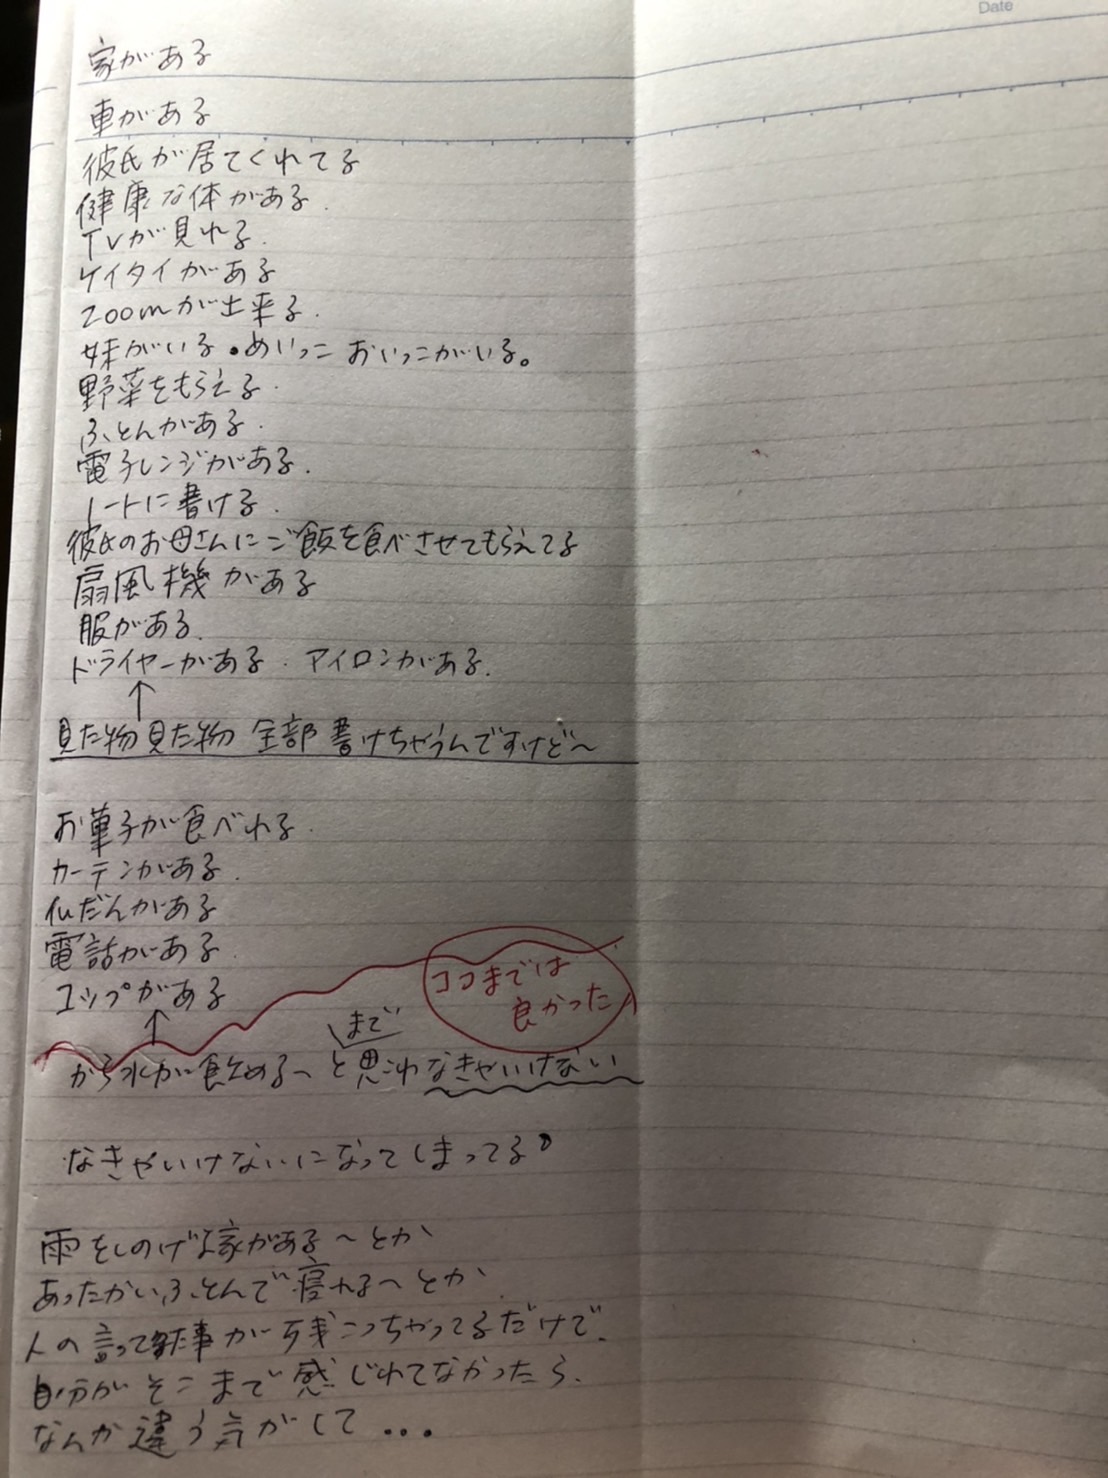 Date
家がある
車がある
彼氏が居てくれてる
健康な体がある.
TVが見れる.
ケイタイがある
zoomが出来る.
妹がいる。めいっこ おいっこがいる。
野菜をもらえる.
ふとんがある.
電子レンジがある.
ノートに書ける.
彼氏のお母さんにご飯を食べさせてもらえてる
扇風機がある
服がある.
ドライヤーがある. アイロンがある.
↑
見た物見た物 全部書けちゃうんですけど〜
お菓子が食べれる.
カーテンがある.
仏だんがある
電話がある
コップがある
ココまでは
良かった
↑
まで
から水が飲める〜と思わなきゃいけない
なきゃいけないになってしまってる。
雨をしのげる家がある〜とか
あったかいふとんで寝れる〜とか
人の言ってた事が残っちゃってるだけで、
自分がそこまで感じれてなかったら、
なんか違う気がして...